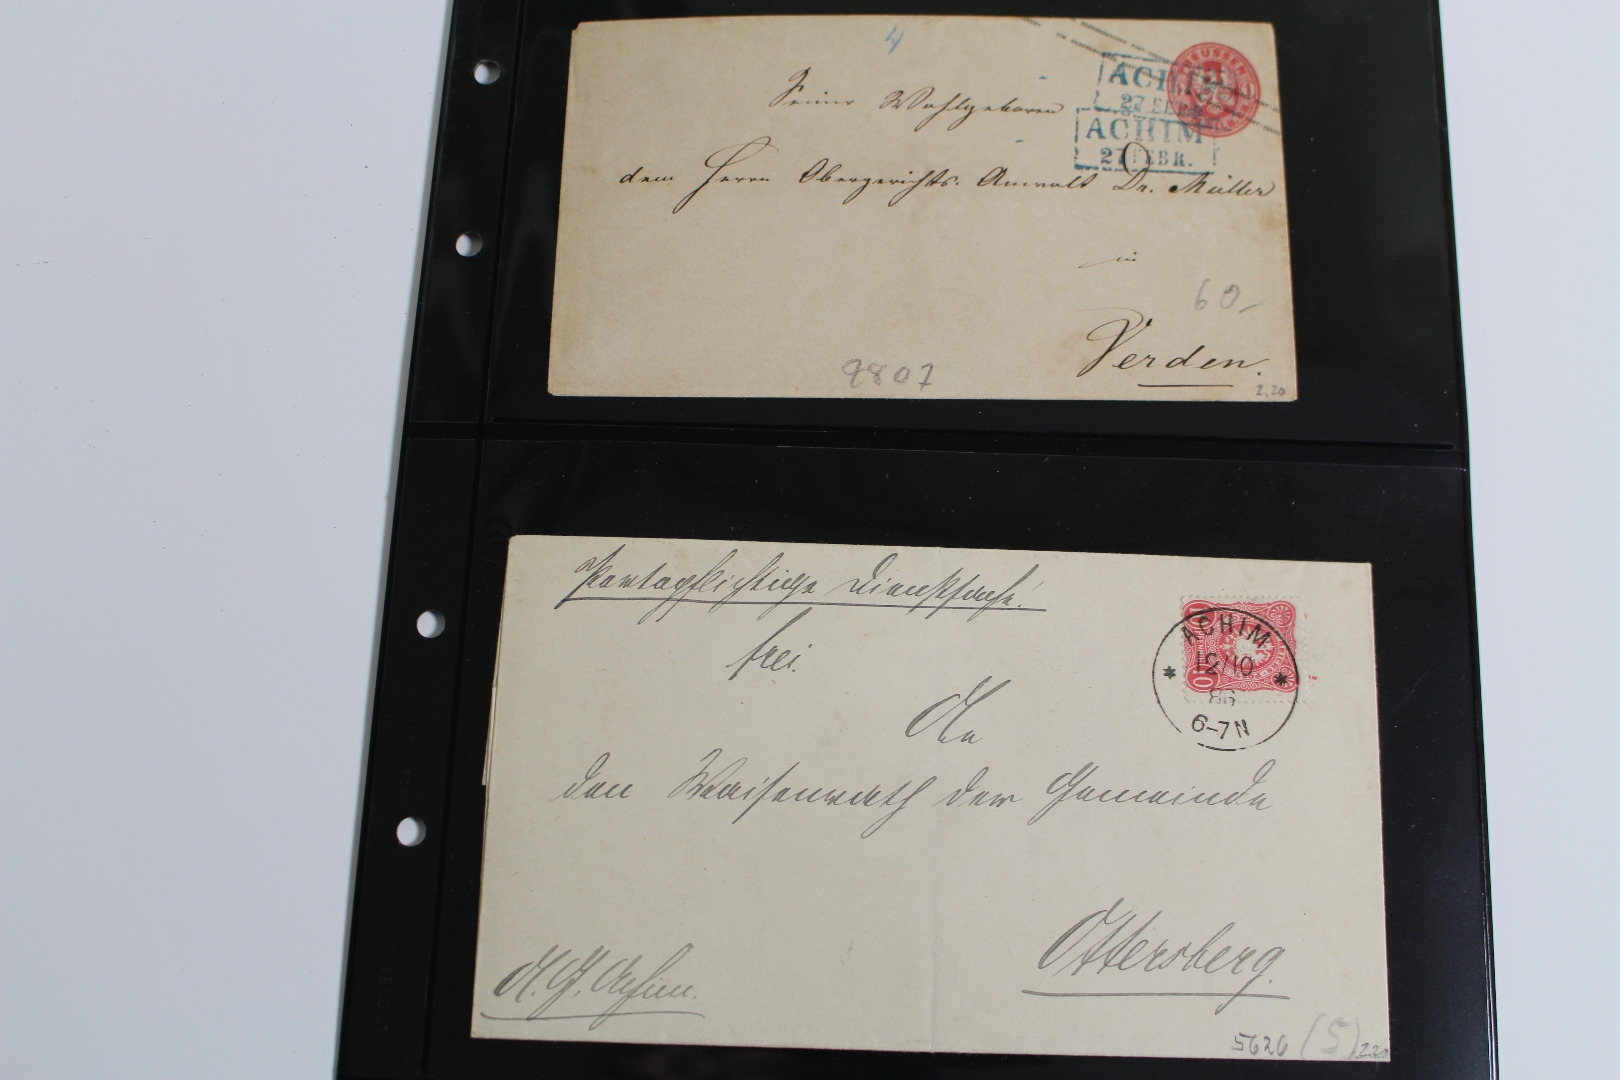 4
PREUSSEN
ACHIM
27 FEBR.
ACHIM
27 FEBR.
Seiner Wohlgeboren
dem Herrn Obergerichts-Anwalt Dr. Müller
in
60-
Verden.
9807
2,20
Portopflichtige Dienstsache!
frei.
ACHIM
13/10
86
6-7N
10
10
An
den Waisenrath der Gemeinde
Ottersberg.
A. G. Achim.
5626 (5) 2.20